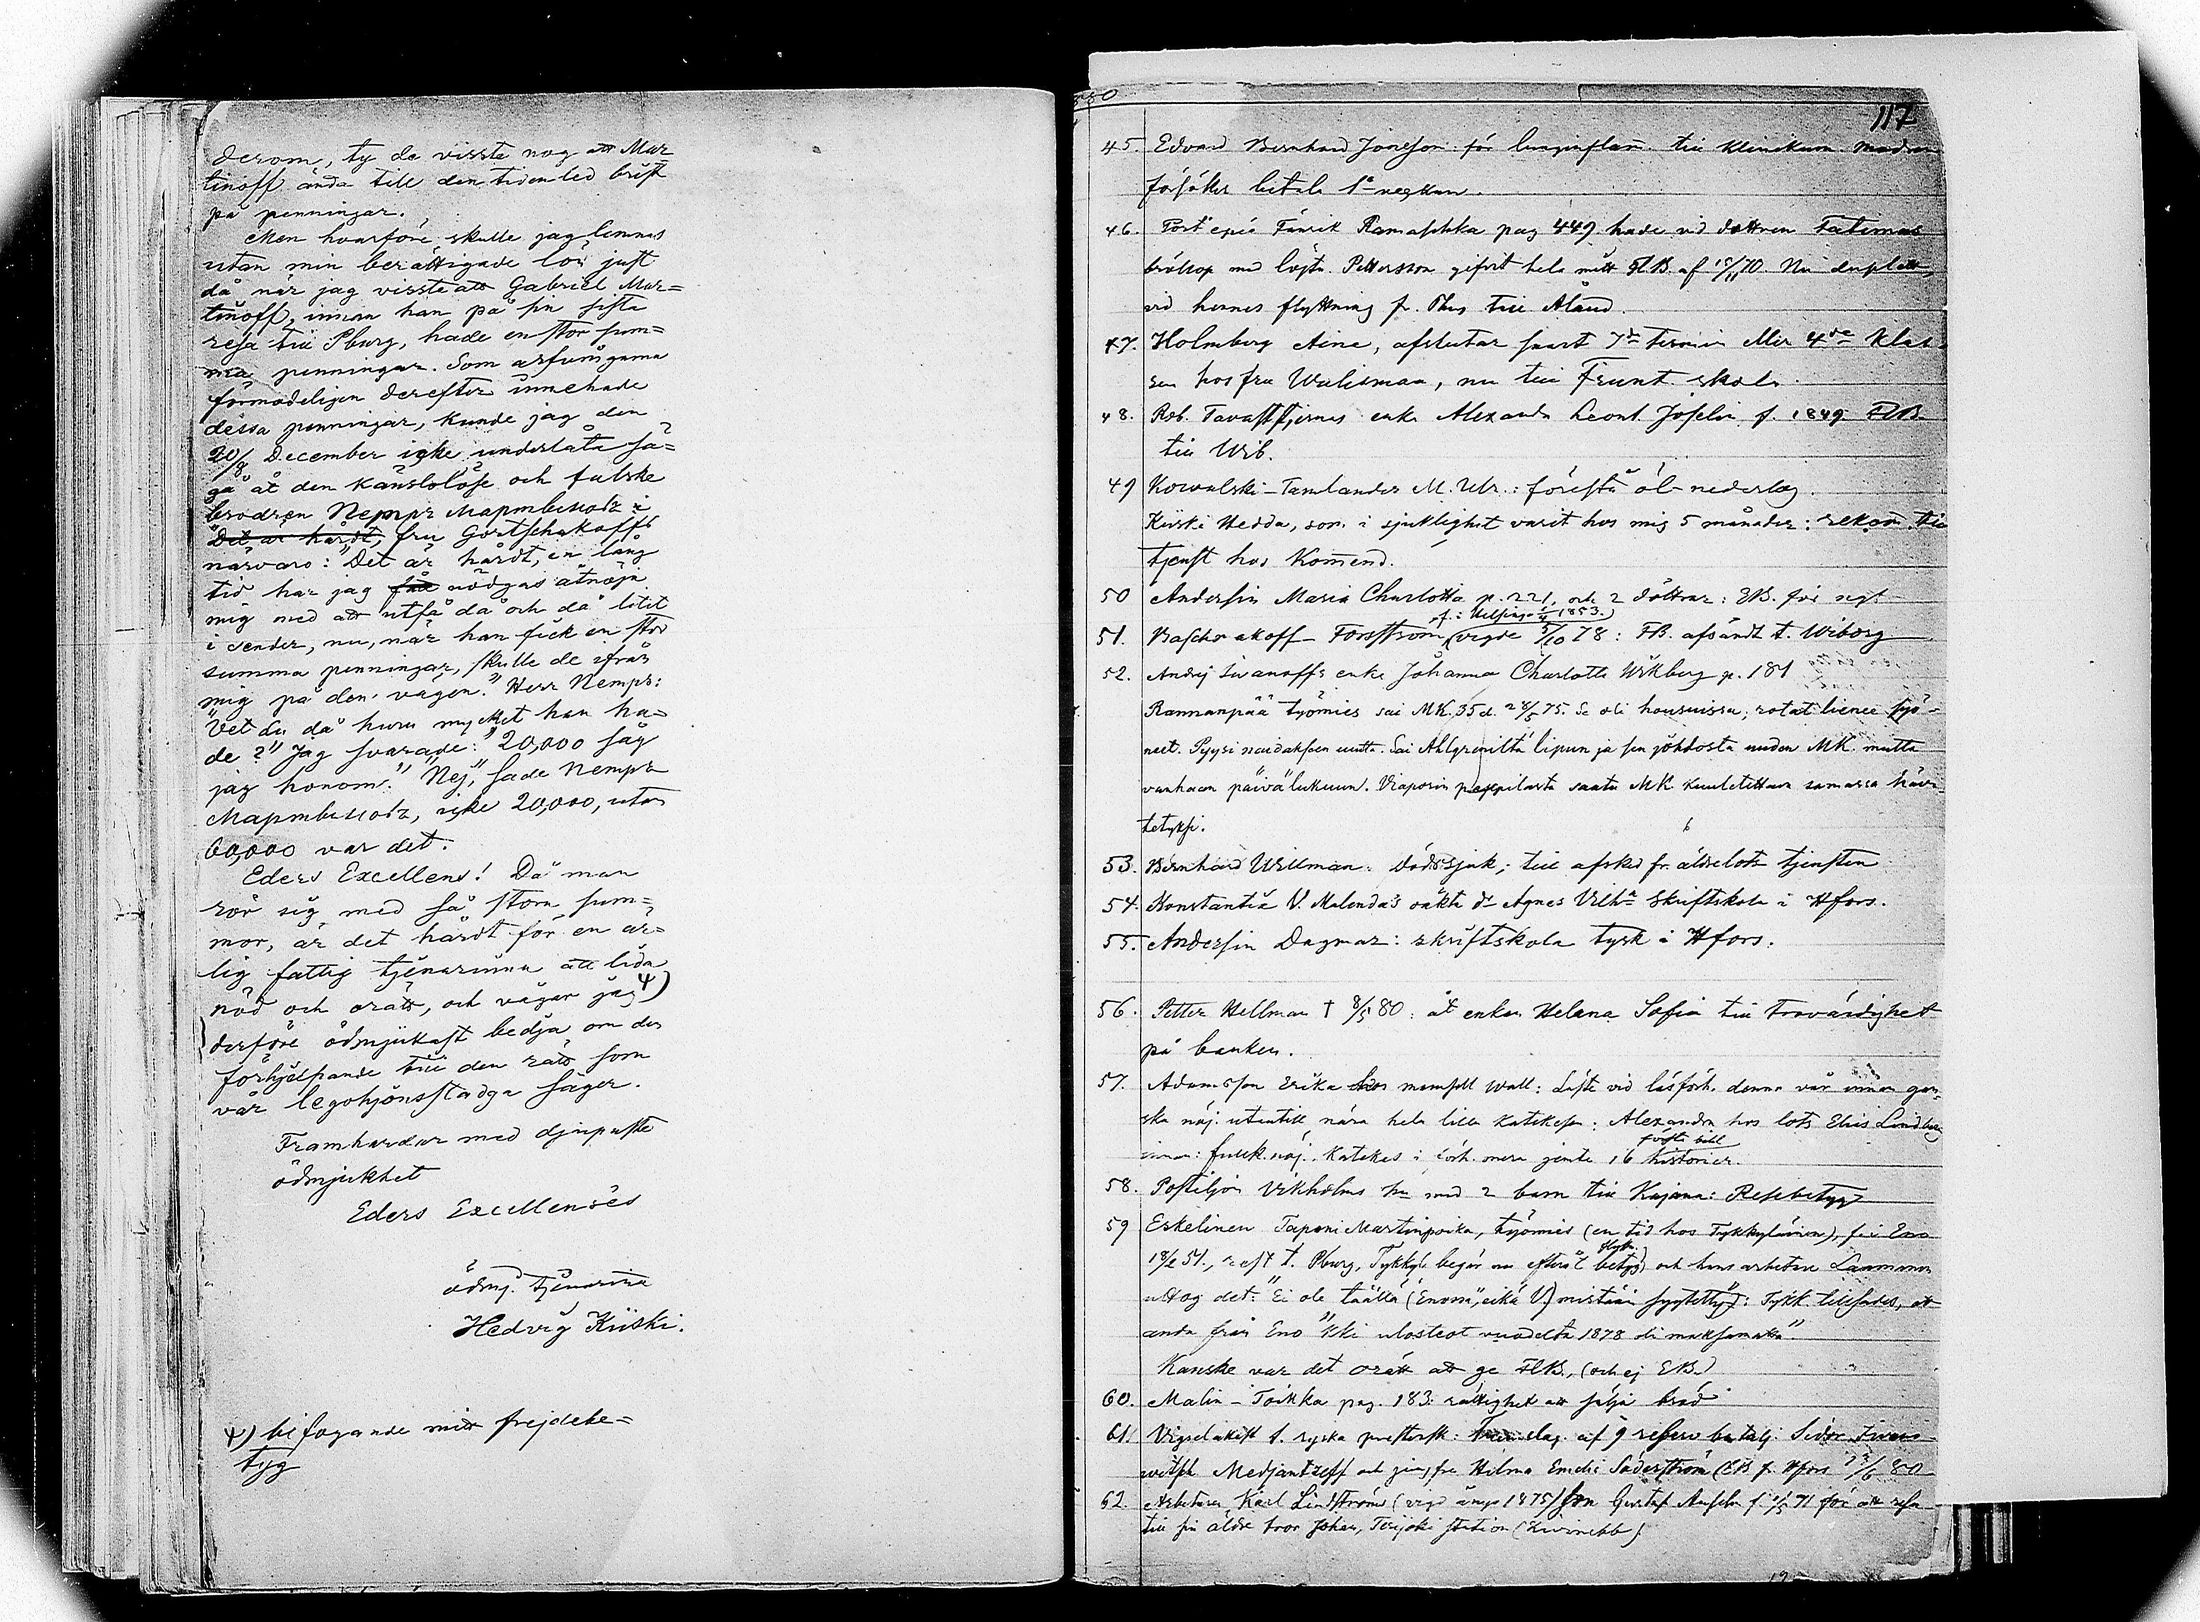 derom, ty de visste nog att Mar
tinoff ända till den tiden led brist
på penningar.
Men hvarföre skulle jag lemnas
utan min berättigade lön just
då när jag visste att Gabriel Mar=
tinoff, innan han på sin sista
resa till Pburg, hade en stor sum=
ma penningar. Som arfvingarna
förmodeligen derefter innehade
dessa penningar, kunde jag den
20/8 December icke underlåta sä=
ga åt den känslolöse och falske
brodren
"Det är hårdt, fru Gortschakoffs
närvaro: "Det är hårdt, en lång
tid har jag få nödgas åtnöja
mig med att utfå då och då litet
i sender, nu, när han fick en stor
summa penningar, skulle de
mig på den vägen." Herr
"Vet du då huru mycket han ha=
de?" Jag svarade: "20,000 såg
jag honom." "Nej," sade
icke 20,000, utan
60,000 var det.
Eders Excellens! Då man
rör sig med så stora sum=
mor, är det hårdt för en är=
lig fattig tjenarinna att lida
nöd och orätt, och vågar jag ψ)
derföre ödmjukast bedja om den
förhjelpande till den rätt som
vår legohjonsstadga säger.
Framhärdar med djupaste
ödmjukhet
Eders Excellenses
ödmj. tjenarinna
Hedvig Kiiski.
ψ) bifogande mitt frejdebe=
tyg
880
117
45. Edvard Bernhard Jonesson för lunginflam. till Klinikum. modren
försöker betala 1a veckan.
46. Fänrik Ramaschka pag 449 hade vid dottren Fatimas
bröllop med löjtn. Pettersson gifvit hela mitt FlB. af 15/11 70. Nu duplett,
vid hennes flyttning fr. Åbo till Åland.
47. Holmberg Aina, afslutar snart 7de termin eller 4de klas-
sen hos fru Wulisman, nu till Frunt. skola.
48. Rob. Tavaststjernas enka Alexandra Leont. Josefin f. 1849 FlB
till Wib.
49 Kowalski-Tamlander M. Ulr.: förestå öl-nederlag.
Kiiski Hedda, som i sjuklighet varit hos mig 5 månader: rekom. till
tjenst hos Komend.
50 Andersin Maria Charlotta p. 221, och 2 döttrar: FlB. för
f. i Helsingf. 1853.)
51. Forsstrom (vigde 5/10 78: FB. afsändt t. Wiborg
52. Andrej Iwanoffs enka Johanna Charlotta Wikberg p. 181
Rannanpää työmies sai MK. 35 d. 28/5 75. Se oli housuissa, rotat lienee syö-
neet. Pyysi naidakseen uutta. Sai Ahlgrenilta lipun ja sen johdosta uuden MK. mutta
vanhaan päivälukuun. Viaporin pappilasta saatu MK kuulutettaen samassa hävi-
tetyksi.
53. Bernhard Willman: dödssjuk; till afsked fr. äldrelots tjensten
54. Konstantia V. Malenda's oäkta dr Agnes Vilha skriftskola i Hfors.
55. Andersin Dagmar: skriftskola tysk i Hfors.
56. Petter Hellman † 8/5 80: åt enkan Helena Sofia till trovärdighet
på banken.
57. Adamsson Erika hos mamsell Wall: Läste vid läsförh. denna vår innan gan-
ska nöj. utantill nära hela lilla katekesen: Alexandra hos lots Elis Lindberg
första bibl
innan: fullk. nöj. Katekes i förh. mera jemte 16 historier.
58. Postiljon Vikholms hu med 2 barn till Kajana: Resebetyg
59 Eskelinen Taponi Martinpoika, työmies (en tid hos Tykkyläinen), f. i Eno
flyttn.
18/2 51., t. Pburg, Tykkyl. begär nu efteråt betyg) och hans arbetare Laamanen
uttog det. "Ei ole täällä (Enossa, eikä V.) mistään syytetty": Tykk. tillsades, att
anda från Eno "Kki ulosteot vuodelta 1878 oli maksamatta."
Kanske var det orätt att ge FlB., (och ej EB.)
60. Malin-Toikka pag. 183: rättighet att sälja bröd
61. Vigselattest t. ryska prestersk: af 9 reserv batalj. Sidor Iwano-
witsch Medjantzeff och jungfru Hilma Emelie Söderström (EB fr. Hfors 23/6 80
62. Arbetaren Karl Lindström (vigd änys 1875) son Gustaf Anselm f. 1/5 71 för att resa
till sin äldre bror Johan, Terijoki station (Kivinebb)